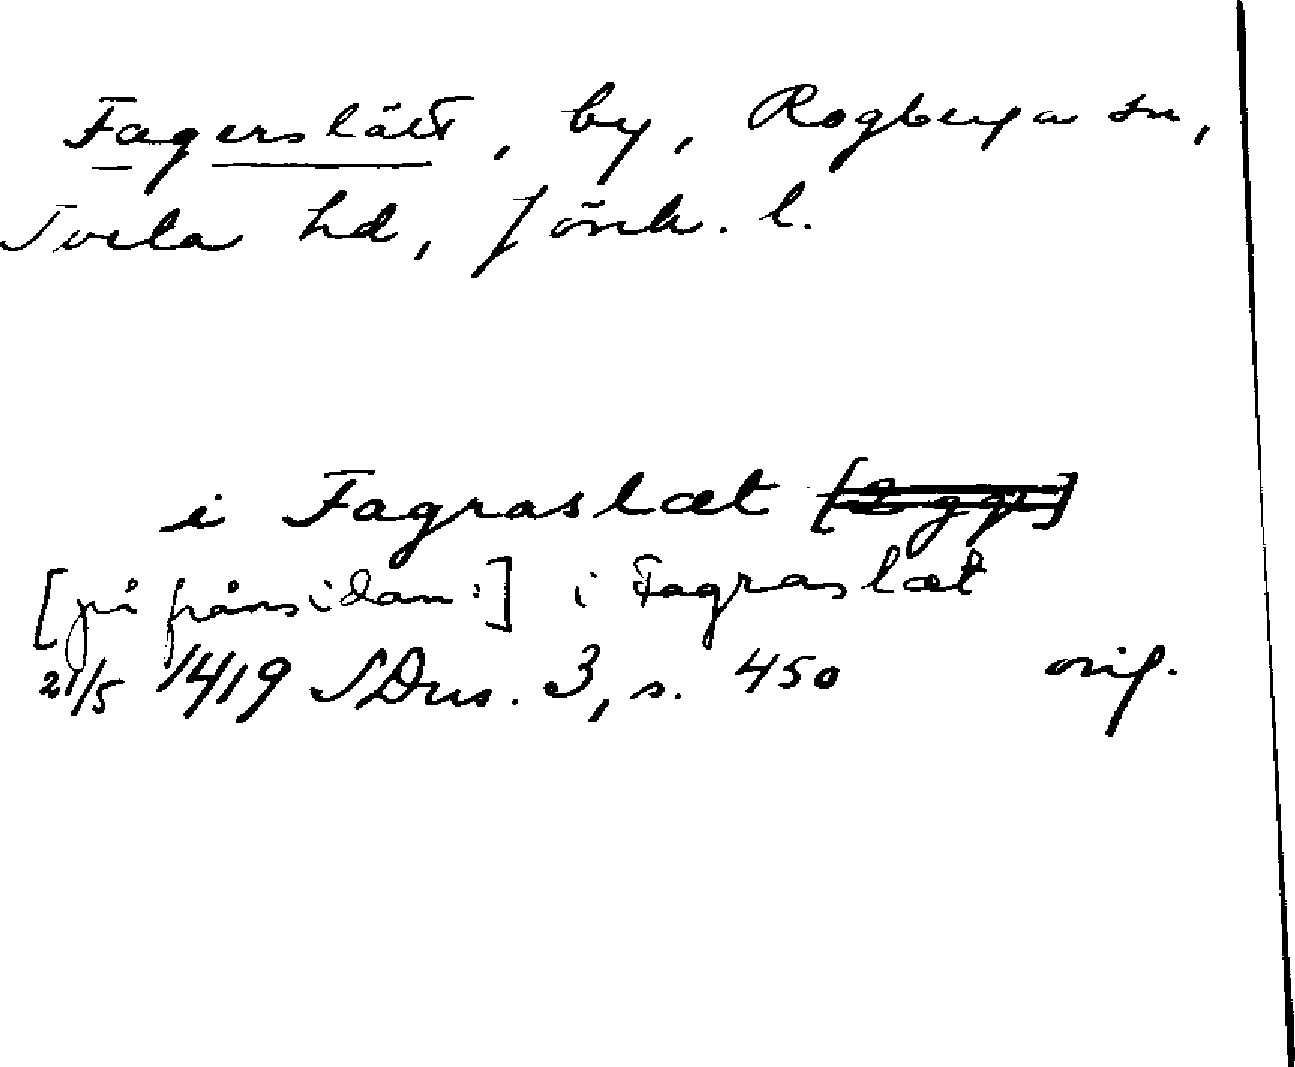 Fagerslätt, by, Rogberga sn,
Tveta hd, Jönk. l.
i Fagraslæt [2 ggr]
[på frånsidan:] i Fagraslæt
21/5 1419 SDns. 3, s. 450 orig.